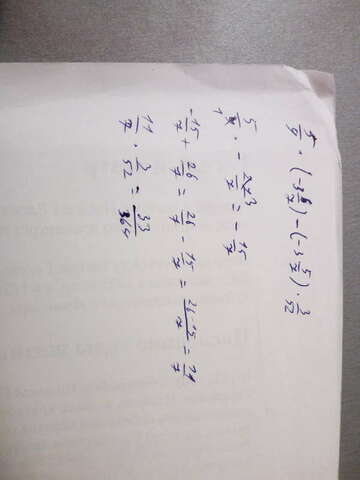 5/9 · (-3 6/7) - (-3 5/7) · 3/52
5/9 1 · - 27 3/7 = - 15/7
-15/7 + 26/7 = 26/7 - 15/7 = 26-15/7 = 11/7
11/7 · 3/52 = 33/364